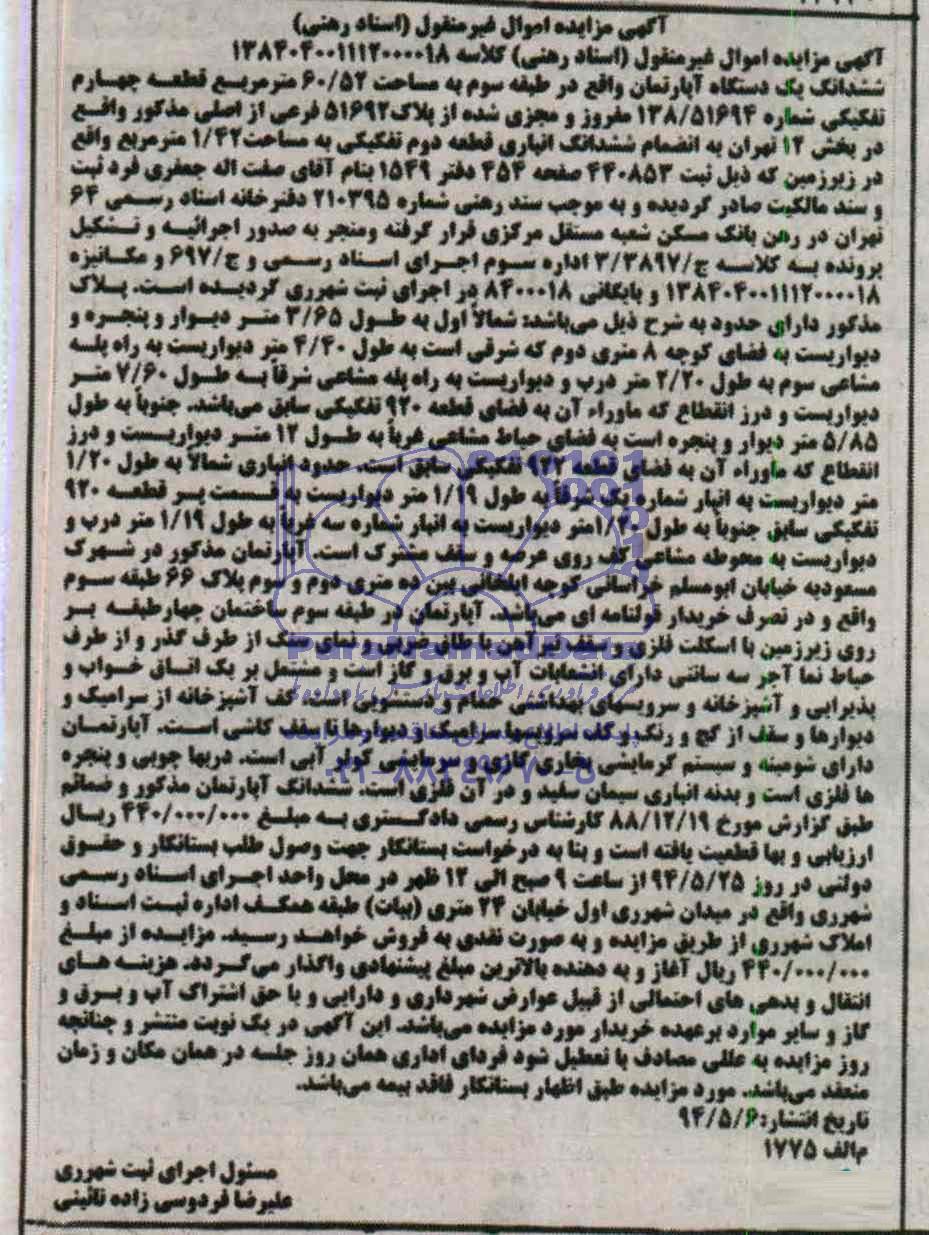 آگهی مزایده اموال غیرمنقول (اسناد رهنی)
آگهی مزایده اموال غیرمنقول (اسناد رهنی) کلاسه ۱۳۸۴۰۴۰۰۱۱۱۲۰۰۰۰۱۸
ششدانگ یک دستگاه آپارتمان واقع در طبقه سوم به مساحت ۶۰/۵۲ مترمربع قطعه چهارم
تفکیکی شماره ۱۳۸/۵۱۶۹۴ مفروز و مجزی شده از پلاک ۵۱۶۹۲ فرعی از اصلی مذکور واقع
در بخش ۱۲ تهران به انضمام ششدانگ انباری قطعه دوم تفکیکی به مساحت ۱/۴۲ مترمربع واقع
در زیرزمین که ذیل ثبت ۴۴۰۸۵۳ صفحه ۴۵۴ دفتر ۱۵۴۹ بنام آقای صفت اله جعفری فرد ثبت
و سند مالکیت صادر گردیده و به موجب سند رهنی شماره ۲۱۰۳۹۵ دفترخانه اسناد رسمی ۶۴
تهران در رهن بانک مسکن شعبه مستقل مرکزی قرار گرفته ومنجر به صدور اجرائیه و تشکیل
پرونده به کلاسه ج/۳/۳۸۹۷ اداره سوم اجرای اسناد رسمی و ج/۶۹۷ و مکانیزه
۱۳۸۴۰۴۰۰۱۱۱۲۰۰۰۰۱۸ و بایگانی ۸۴۰۰۰۱۸ در اجرای ثبت شهرری گردیده است. پلاک
مذکور دارای حدود به شرح ذیل می‌باشد: شمالاً اول به طول ۳/۶۵ متر دیوار و پنجره و
دیواریست به فضای کوچه ۸ متری دوم که شرقی است به طول ۴/۴۰ متر دیواریست به راه پله
مشاعی سوم به طول ۲/۲۰ متر درب و دیواریست به راه پله مشاعی شرقاً به طول ۷/۶۰ متر
دیواریست و درز انقطاع که ماوراء آن به فضای قطعه ۹۲۰ تفکیکی سابق می‌باشد. جنوباً به طول
۵/۸۵ متر دیوار و پنجره است به فضای حیاط مشاعی غرباً به طول ۱۲ متر دیواریست و درز
انقطاع که ماوراء آن به فضای قطعه ۹۲۲ تفکیکی سابق است. حدود انباری شمالاً به طول ۱/۲۰
متر دیواریست به انبار شماره یک شرقاً به طول ۱/۱۹ متر دیواریست به قسمت پر قطعه ۹۲۰
تفکیکی سابق جنوباً به طول ۱/۲۰متر دیواریست به انبار شماره سه غرباً به طول ۱/۱۹ متر درب و
دیواریست به محوطه مشاعی کف روی عرصه و سقف مشترک است. آپارتمان مذکور در شهرک
مسعودیه خیابان ابومسلم خراسانی کوچه ایلخانی بین ده متری دوم و سوم پلاک ۶۶ طبقه سوم
واقع و در تصرف خریدار قولنامه ای می‌باشد. آپارتمان در طبقه سوم ساختمان چهارطبقه بر
روی زیرزمین با اسکلت فلزی و سقف تیرآهن با طاق ضربی و نمای سنگ از طرف گذر و از طرف
حیاط نما آجر سه سانتی دارای انشعابات آب و برق و گاز است و مشتمل بر یک اتاق خواب و
پذیرایی و آشپزخانه و سرویسهای بهداشتی حمام و دستشویی است. کف آشپزخانه از سرامیک و
دیوارها و سقف از گچ و رنگ و کف سرویسها سرامیک و دیوارها تا سقف کاشی است. آپارتمان
دارای شومینه و سیستم گرمایشی بخاری گازی و سرمایشی کولر آبی است. دربها چوبی و پنجره
ها فلزی است و بدنه انباری سیمان سفید و در آن فلزی است. ششدانگ آپارتمان مذکور و ضمائم
طبق گزارش مورخ ۸۸/۱۲/۱۹ کارشناس رسمی دادگستری به مبلغ ۴۴۰/۰۰۰/۰۰۰ ریال
ارزیابی و بها قطعیت یافته است و بنا به درخواست بستانکار جهت وصول طلب بستانکار و حقوق
دولتی در روز ۹۴/۵/۲۵ از ساعت ۹ صبح الی ۱۲ ظهر در محل واحد اجرای اسناد رسمی
شهرری واقع در میدان شهرری اول خیابان ۲۴ متری (بیات) طبقه همکف اداره ثبت اسناد و
املاک شهرری از طریق مزایده و به صورت نقدی به فروش خواهد رسید. مزایده از مبلغ
۴۴۰/۰۰۰/۰۰۰ ریال آغاز و به دهنده بالاترین مبلغ پیشنهادی واگذار می‌گردد. هزینه های
انتقال و بدهی های احتمالی از قبیل عوارض شهرداری و دارایی و یا حق اشتراک آب و برق و
گاز و سایر موارد برعهده خریدار مورد مزایده می‌باشد. این آگهی در یک نوبت منتشر و چنانچه
روز مزایده به عللی مصادف با تعطیل شود فردای اداری همان روز جلسه در همان مکان و زمان
منعقد می‌باشد. مورد مزایده طبق اظهار بستانکار فاقد بیمه می‌باشد.
تاریخ انتشار: ۹۴/۵/۶
م‌الف ۱۷۷۵
مسئول اجرای ثبت شهرری
علیرضا فردوسی زاده نائینی